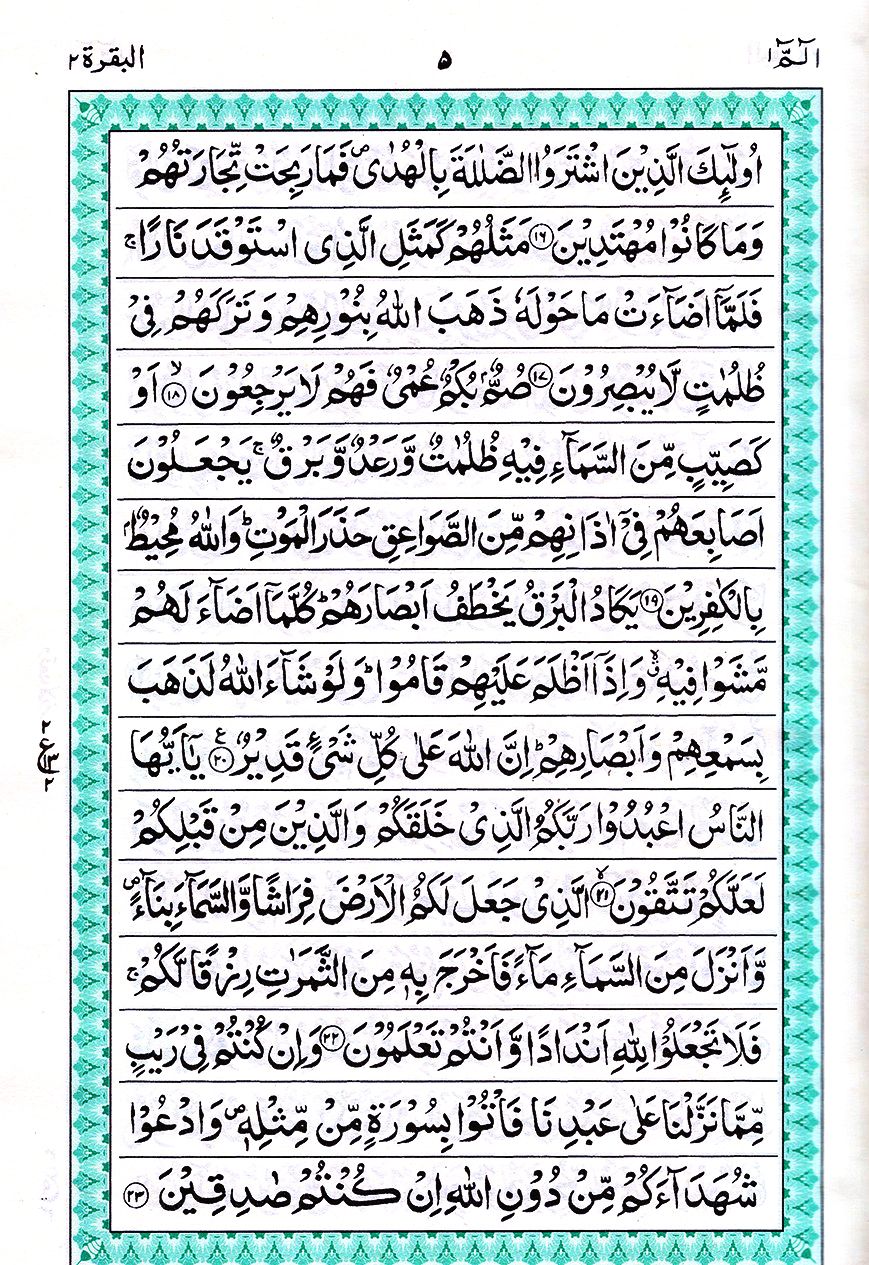 الٓمّٓ ۱
۵
البقرة ۲
اُولٰٓئِكَ الَّذِیْنَ اشْتَرَوُا الضَّلٰلَةَ بِالْهُدٰی۪ فَمَا رَبِحَتْ تِّجَارَتُهُمْ
وَمَا كَانُوْا مُهْتَدِیْنَ ﴿۱۶﴾ مَثَلُهُمْ كَمَثَلِ الَّذِی اسْتَوْقَدَ نَارًا ۚ
فَلَمَّاۤ اَضَآءَتْ مَا حَوْلَهٗ ذَهَبَ اللّٰهُ بِنُوْرِهِمْ وَتَرَكَهُمْ فِیْ
ظُلُمٰتٍ لَّا یُبْصِرُوْنَ ﴿۱۷﴾ صُمٌّۢ بُكْمٌ عُمْیٌ فَهُمْ لَا یَرْجِعُوْنَ ﴿۱۸﴾ۙ اَوْ
كَصَیِّبٍ مِّنَ السَّمَآءِ فِیْهِ ظُلُمٰتٌ وَّرَعْدٌ وَّبَرْقٌ ۚ یَجْعَلُوْنَ
اَصَابِعَهُمْ فِیْۤ اٰذَانِهِمْ مِّنَ الصَّوَاعِقِ حَذَرَ الْمَوْتِ ؕ وَاللّٰهُ مُحِیْطٌۢ
بِالْكٰفِرِیْنَ ﴿۱۹﴾ یَكَادُ الْبَرْقُ یَخْطَفُ اَبْصَارَهُمْ ؕ كُلَّمَاۤ اَضَآءَ لَهُمْ
مَّشَوْا فِیْهِ ۙۗ وَاِذَاۤ اَظْلَمَ عَلَیْهِمْ قَامُوْا ؕ وَلَوْ شَآءَ اللّٰهُ لَذَهَبَ
بِسَمْعِهِمْ وَاَبْصَارِهِمْ ؕ اِنَّ اللّٰهَ عَلٰی كُلِّ شَیْءٍ قَدِیْرٌ ﴿۲۰﴾ۧ یٰۤاَیُّهَا
النَّاسُ اعْبُدُوْا رَبَّكُمُ الَّذِیْ خَلَقَكُمْ وَالَّذِیْنَ مِنْ قَبْلِكُمْ
لَعَلَّكُمْ تَتَّقُوْنَ ﴿۲۱﴾ۙ الَّذِیْ جَعَلَ لَكُمُ الْاَرْضَ فِرَاشًا وَّالسَّمَآءَ بِنَآءً ۪
وَّاَنْزَلَ مِنَ السَّمَآءِ مَآءً فَاَخْرَجَ بِهٖ مِنَ الثَّمَرٰتِ رِزْقًا لَّكُمْ ۚ
فَلَا تَجْعَلُوْا لِلّٰهِ اَنْدَادًا وَّاَنْتُمْ تَعْلَمُوْنَ ﴿۲۲﴾ وَاِنْ كُنْتُمْ فِیْ رَیْبٍ
مِّمَّا نَزَّلْنَا عَلٰی عَبْدِنَا فَاْتُوْا بِسُوْرَةٍ مِّنْ مِّثْلِهٖ ۪ وَادْعُوْا
شُهَدَآءَكُمْ مِّنْ دُوْنِ اللّٰهِ اِنْ كُنْتُمْ صٰدِقِیْنَ ﴿۲۳﴾